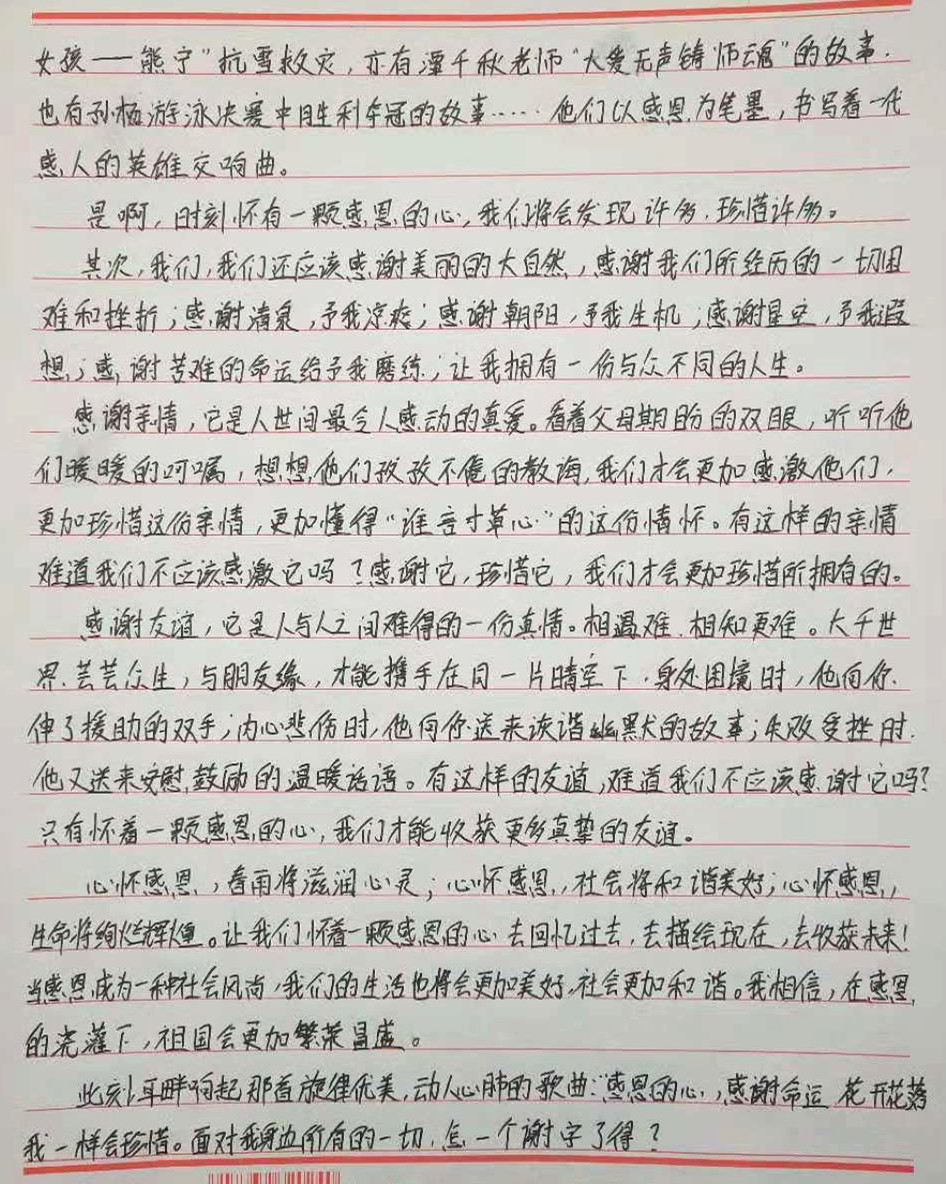 女孩——熊宁"抗雪救灾，亦有潭千秋老师"大爱无声铸师魂"的故事.
也有孙杨游泳决赛中胜利夺冠的故事……他们以感恩为笔墨，书写着一代
感人的英雄交响曲。
是啊，时刻怀有一颗感恩的心，我们将会发现许多，珍惜许多。
其次，我们，我们还应该感谢美丽的大自然，感谢我们所经历的一切困
难和挫折；感谢清泉，予我凉爽；感谢朝阳，予我生机；感谢星空，予我遐
想；感谢苦难的命运给予我磨练；让我拥有一份与众不同的人生。
感谢亲情，它是人世间最令人感动的真爱。看着父母期盼的双眼，听听他
们暖暖的叮嘱，想想他们孜孜不倦的教诲，我们才会更加感激他们，
更加珍惜这份亲情，更加懂得"谁言寸草心"的这份情怀。有这样的亲情
难道我们不应该感激它吗？感谢它，珍惜它，我们才会更加珍惜所拥有的。
感谢友谊，它是人与人之间难得的一份真情。相遇难，相知更难。大千世
界，芸芸众生，与朋友缘，才能携手在同一片晴空下，身处困境时，他向你
伸了援助的双手；内心悲伤时，他向你送来诙谐幽默的故事；失败受挫时，
他又送来安慰，鼓励的温暖话语。有这样的友谊，难道我们不应该感谢它吗？
只有怀着一颗感恩的心，我们才能收获更多真挚的友谊。
心怀感恩，春雨将滋润心灵；心怀感恩，社会将和谐美好；心怀感恩，
生命将绚烂辉煌。让我们怀着一颗感恩的心去回忆过去，去描绘现在，去收获未来！
当感恩成为一种社会风尚，我们的生活也将会更加美好，社会更加和谐。我相信，在感恩
的浇灌下，祖国会更加繁荣昌盛。
此刻，耳畔响起那首旋律优美，动人心肺的歌曲："感恩的心，感谢命运 花开花落
我一样会珍惜。面对我身边所有的一切，怎一个谢字了得？